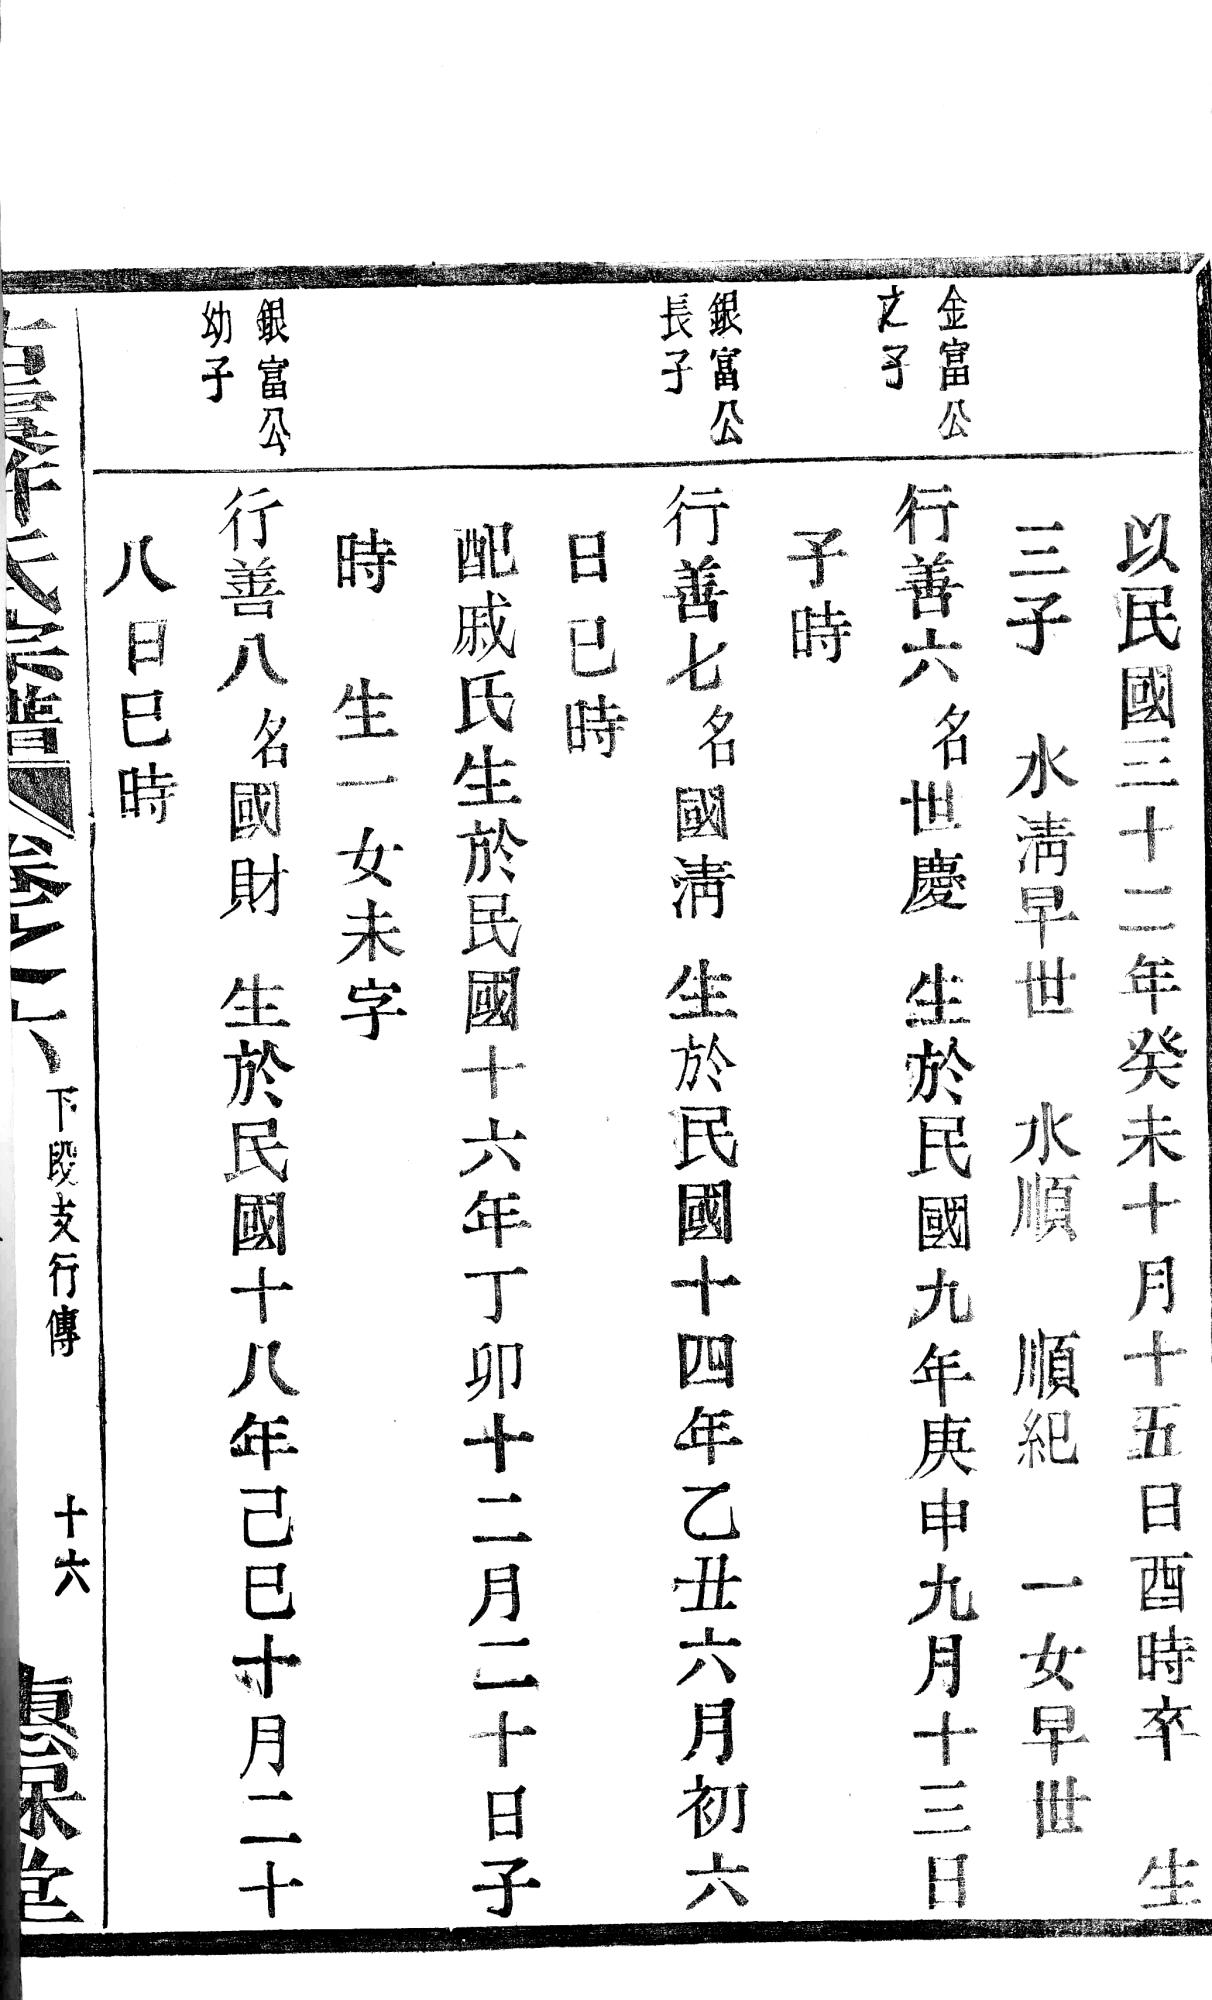 以民國三十二年癸未十月十五日酉時卒　生
三子　水淸早世　水順　順紀　一女早世
金富公
之子
行善六名世慶　生於民國九年庚申九月十三日
子時
銀富公
長子
行善七名國淸　生於民國十四年乙丑六月初六
日巳時
配戚氏生於民國十六年丁卯十二月二十日子
時　生一女未字
銀富公
幼子
行善八名國財　生於民國十八年己巳十月二十
八日巳時
氏宗譜　卷之六　下段支行傳　十六　堂